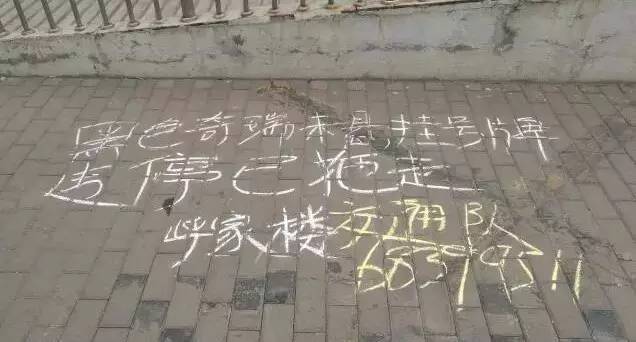 黑色奇瑞未悬挂号牌
违停已拖走
呼家楼交通队